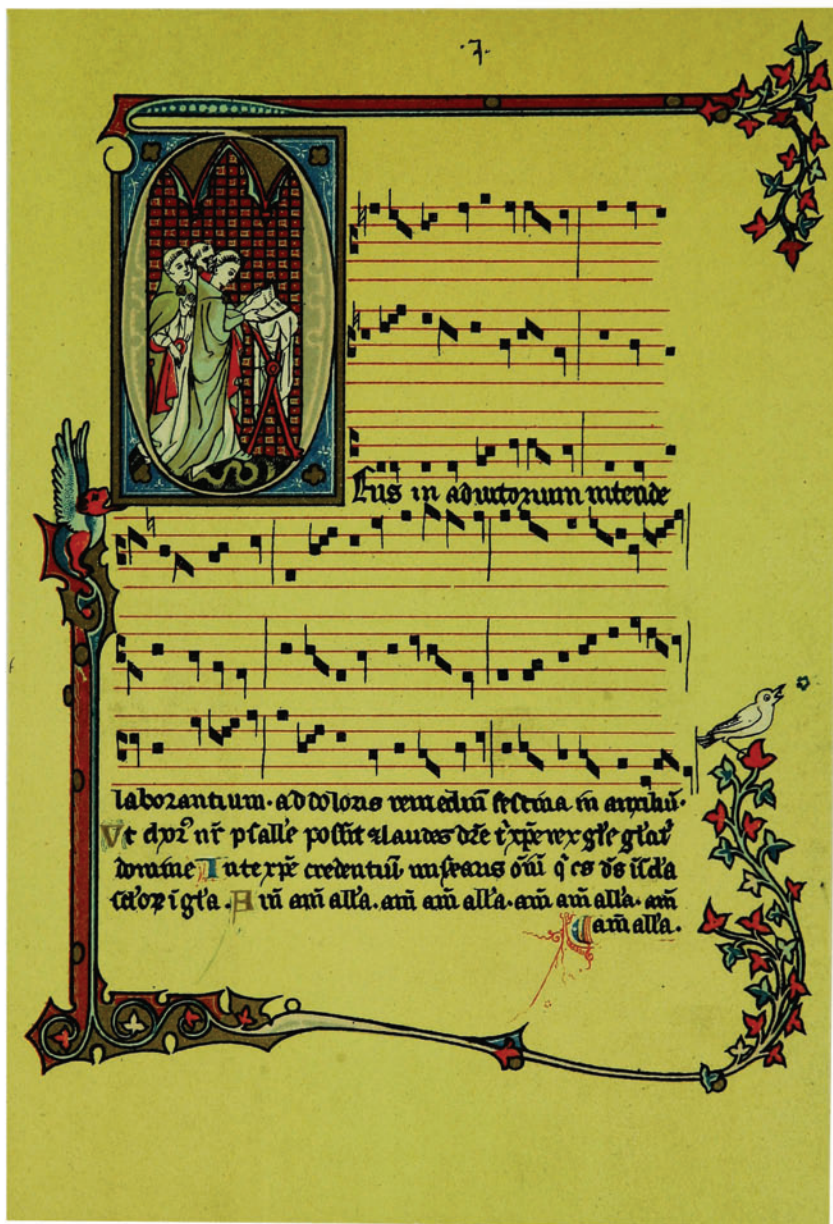 ·7·
Deus in adiutorium intende
laborantium· ad doloris remediū festina in auxiliū·
Vt psall'e possit ⁊ laudes xp̄e rex gl'e gl'a t'
domine In te xp̄e credentiū misearis ōiū q' es ds
i gl'a· Am̄ am̄ all'a· am̄ am̄ all'a· am̄ am̄ all'a· am̄
am̄ all'a·